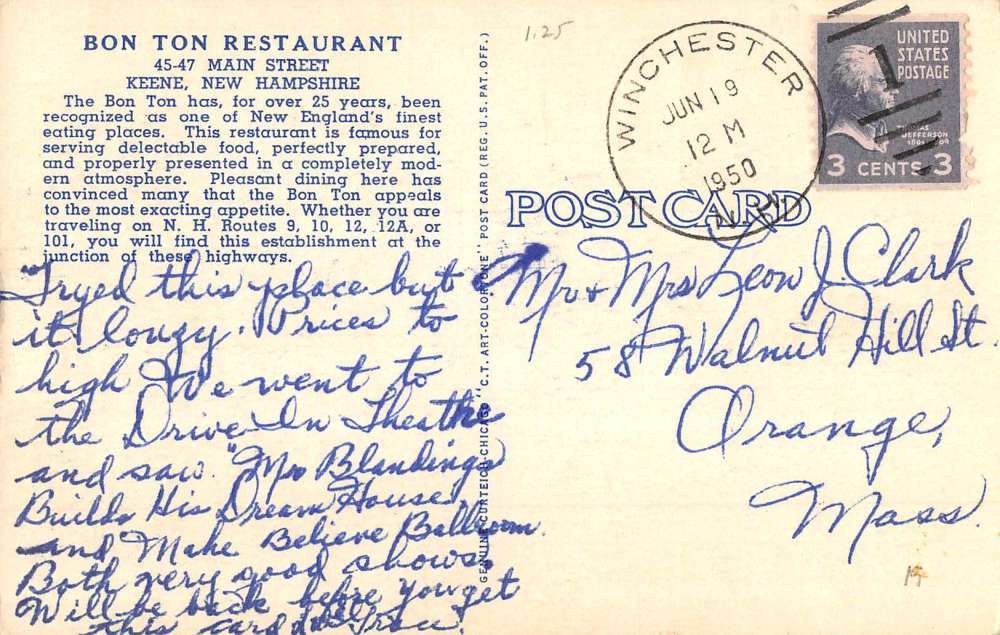 BON TON RESTAURANT
45-47 MAIN STREET
KEENE, NEW HAMPSHIRE
The Bon Ton has, for over 25 years, been
recognized as one of New England's finest
eating places. This restaurant is famous for
serving delectable food, perfectly prepared,
and properly presented in a completely mod-
ern atmosphere. Pleasant dining here has
convinced many that the Bon Ton appeals
to the most exacting appetite. Whether you are
traveling on N. H. Routes 9, 10, 12, 12A, or
101, you will find this establishment at the
junction of these highways.
Tryed this place but
it lougy. Prices to
high We went to
the Drive-In Theathe
and saw. "Mr Blandings
Builds His Dream House,
and Make Believe Ballroom.
Both very good shows.
Will be back before you get
this card
GENUINE CURTEICH-CHICAGO "C.T. ART-COLORTONE" POST CARD (REG. U.S. PAT. OFF.)
1.25
WINCHESTER
JUN 19
12 M
1950
N.H.
1
UNITED
STATES
POSTAGE
THOMAS
JEFFERSON
3 CENTS 3
POST CARD
Mr + Mrs Leon J. Clark
58 Walnut Hill St.
Orange,
Mass.